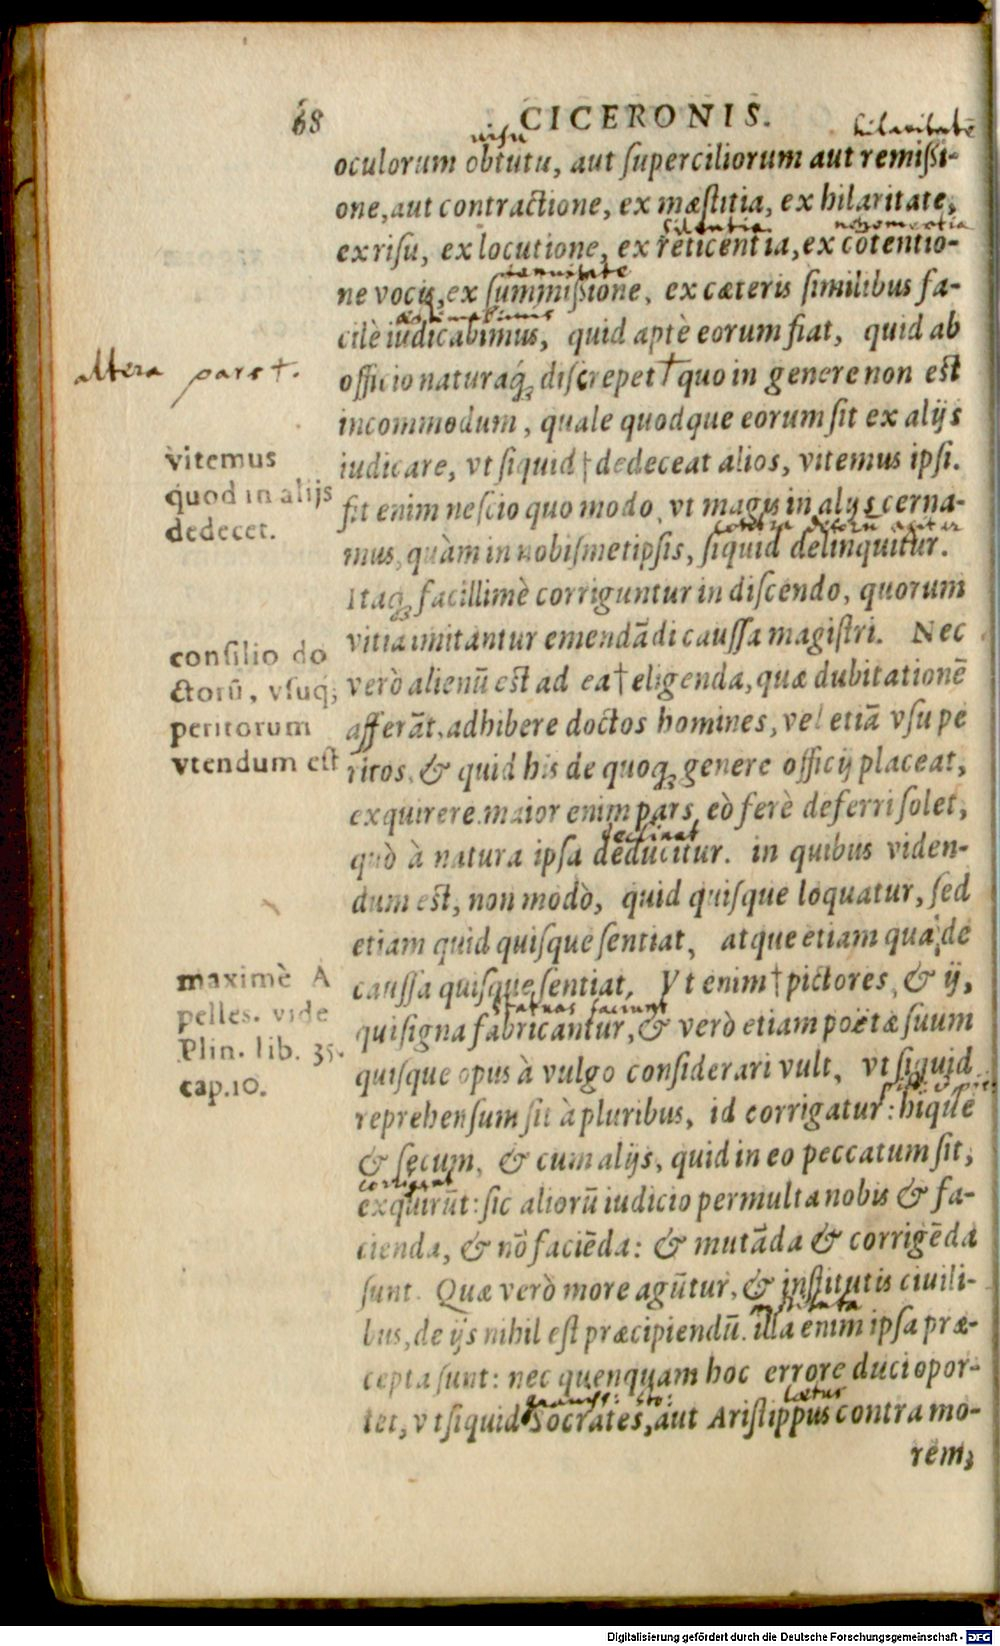 68
CICERONIS.
visu
hilaritatē
oculorum obtutu, aut ſuperciliorum aut remiſsi-
one, aut contractione, ex mæſtitia, ex hilaritate,
silentia
ex riſu, ex locutione, ex reticentia, ex cōtentio-
ne vocis, ex ſummiſsione, ex cæteris ſimilibus fa-
æstimabimus
cilè iudicabimus, quid aptè eorum fiat, quid ab
altera pars †.
officio naturaq́; diſcrepet † quo in genere non eſt
incommodum, quale quodque eorum ſit ex alijs
vitemus
quod in alijs
dedecet.
iudicare, vt ſiquid † dedeceat alios, vitemus ipſi.
fit enim neſcio quo modo, vt magis in alys cerna-
contra decorū agitur
mus, quàm in nobiſmetipſis, ſiquid delinquitur.
Itaq; facillimè corriguntur in diſcendo, quorum
vitia imitantur emendādi cauſſa magiſtri. Nec
conſilio do
ctorū, vſuq́;
peritorum
vtendum eſt
verò alienū eſt ad ea † eligenda, quæ dubitationē
afferāt, adhibere doctos homines, vel etiā vſu pe
ritos, & quid his de quoq; genere officij placeat,
exquirere. maior enim pars eò ferè deferri ſolet,
declinat
quò à natura ipſa deducitur. in quibus viden-
dum eſt, non modò, quid quiſque loquatur, ſed
etiam quid quiſque ſentiat, atque etiam qua de
maximè A
pelles. vide
Plin. lib. 35.
cap.10.
cauſſa quiſque ſentiat. Vt enim † pictores, & ij,
statuas faciunt
qui ſigna fabricantur, & verò etiam poëtæ ſuum
quiſque opus à vulgo conſiderari vult, vt ſiquid
reprehenſum ſit à pluribus, id corrigatur: hique
& ſecum, & cum alijs, quid in eo peccatum ſit,
corrigant
exquirūt: ſic aliorū iudicio permulta nobis & fa-
cienda, & nō faciēda: & mutāda & corrigēda
ſunt. Quæ verò more agūtur, & inſtitutis ciuili-
instituta
bus, de ijs nihil eſt præcipiendū. illa enim ipſa præ-
cepta ſunt: nec quenquam hoc errore duci opor-
tet, vt ſiquid Socrates, aut Ariſtippus contra mo-
rem,
Digitalisierung gefördert durch die Deutsche Forschungsgemeinschaft - DFG